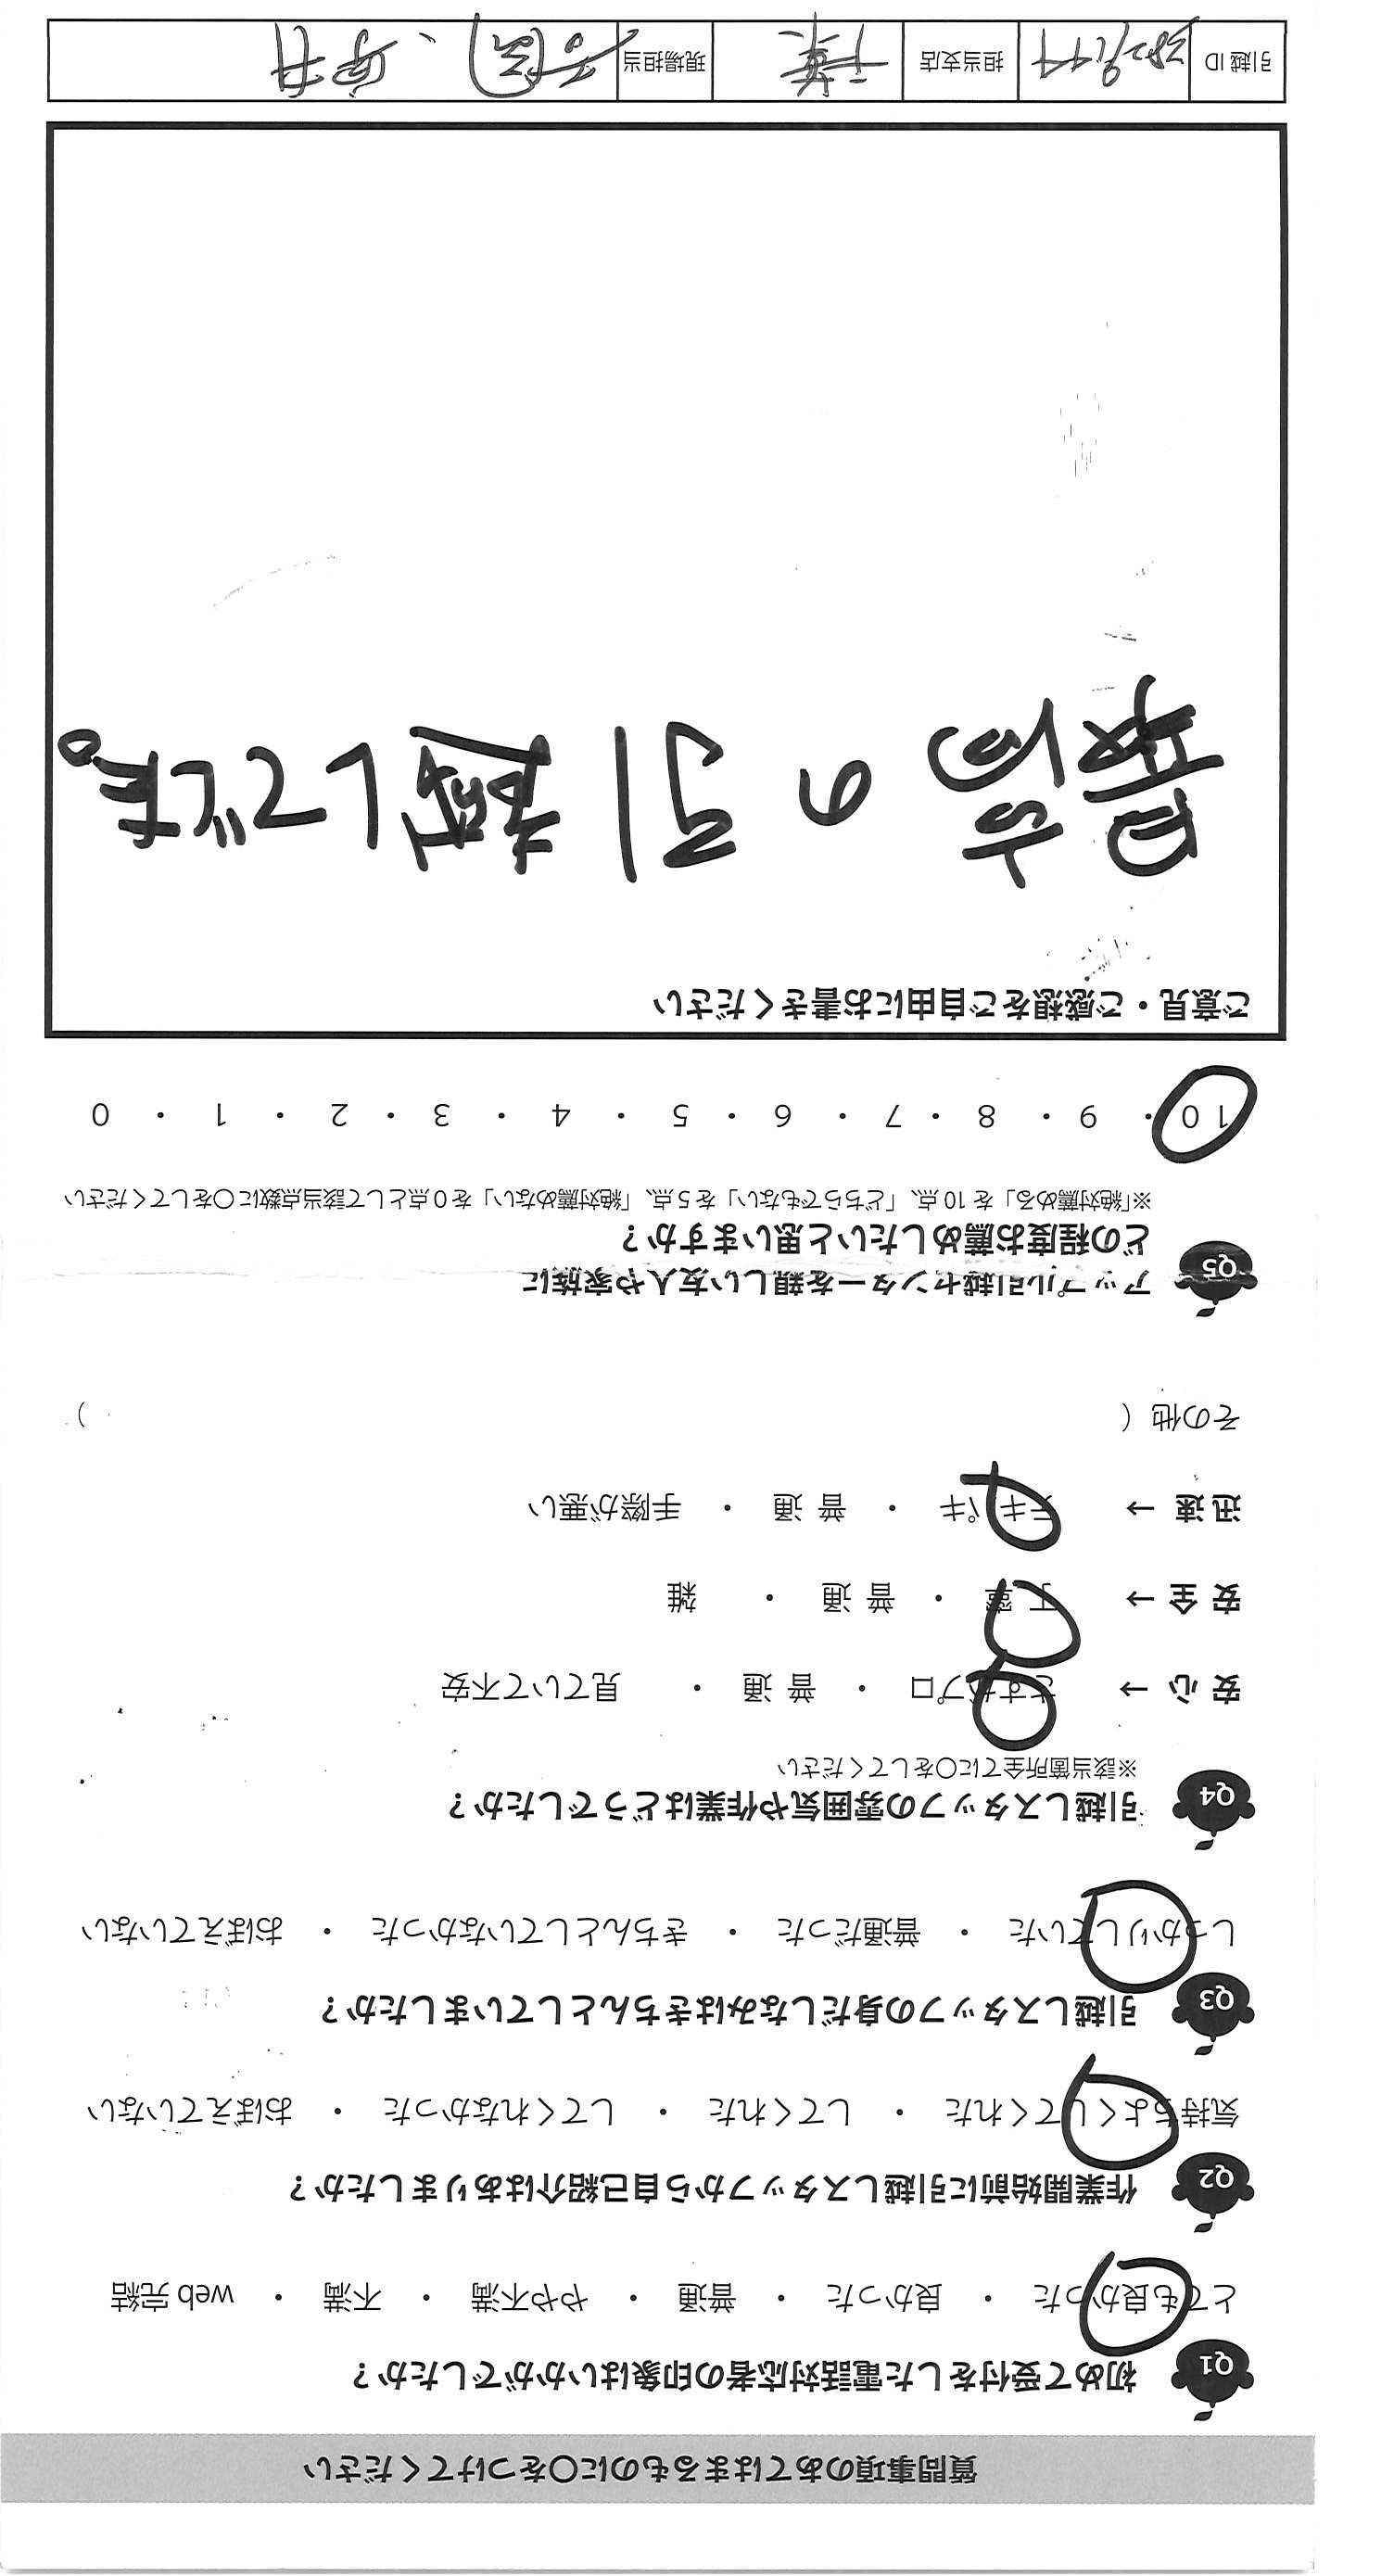 質問事項のあてはまるものに〇をつけてください
Q1 初めて受付をした電話対応者の印象はいかがでしたか？
とても良かった ・ 良かった ・ 普通 ・ やや不満 ・ 不満 ・ web 完結
Q2 作業開始前に引越しスタッフから自己紹介はありましたか？
気持ちよくしてくれた ・ してくれた ・ してくれなかった ・ おぼえていない
Q3 引越しスタッフの身だしなみはきちんとしていましたか？
しっかりしていた ・ 普通だった ・ きちんとしていなかった ・ おぼえていない
Q4 引越しスタッフの雰囲気や作業はどうでしたか？
※該当箇所全てに〇をしてください
安 心 → さすがプロ ・ 普 通 ・ 見ていて不安
安 全 → 丁 寧 ・ 普 通 ・ 雑
迅 速 → テキパキ ・ 普 通 ・ 手際が悪い
その他（ ）
Q5 アップル引越センターを親しい友人や家族に
どの程度お薦めしたいと思いますか？
※「絶対薦める」を 10 点、「どちらでもない」を 5 点、「絶対薦めない」を 0 点として該当点数に〇をしてください
10 ・ 9 ・ 8 ・ 7 ・ 6 ・ 5 ・ 4 ・ 3 ・ 2 ・ 1 ・ 0
ご意見・ご感想をご自由にお書きください
最高の引越しでした。
引越 ID 担当支店 千葉 現場担当